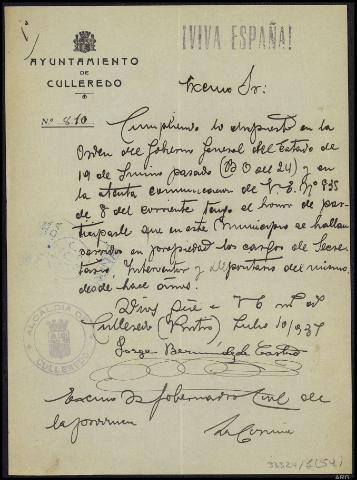 ¡VIVA ESPAÑA!
AYUNTAMIENTO
DE
CULLEREDO
Nº 810
Excmo Sr:
Cumpliendo lo dispuesto en la
Orden del Gobierno General del Estado de
19 de Junio pasado (B O del 24) y en
la atenta comunicacion de V. E. Nº 935
de 8 del corriente tengo el honor de par-
ticiparle que en este Municipio se hallan
servidos en propiedad los cargos de Secre-
tario Interventor y Depositario del mismo,
desde hace años.
Dios gue a V E m. as
Culleredo Julio 10/937
Jorge Bermúdez de Castro
ALCALDIA DE
CULLEREDO
Excmo Sr Gobernador Civil de
la provincia
La Coruña